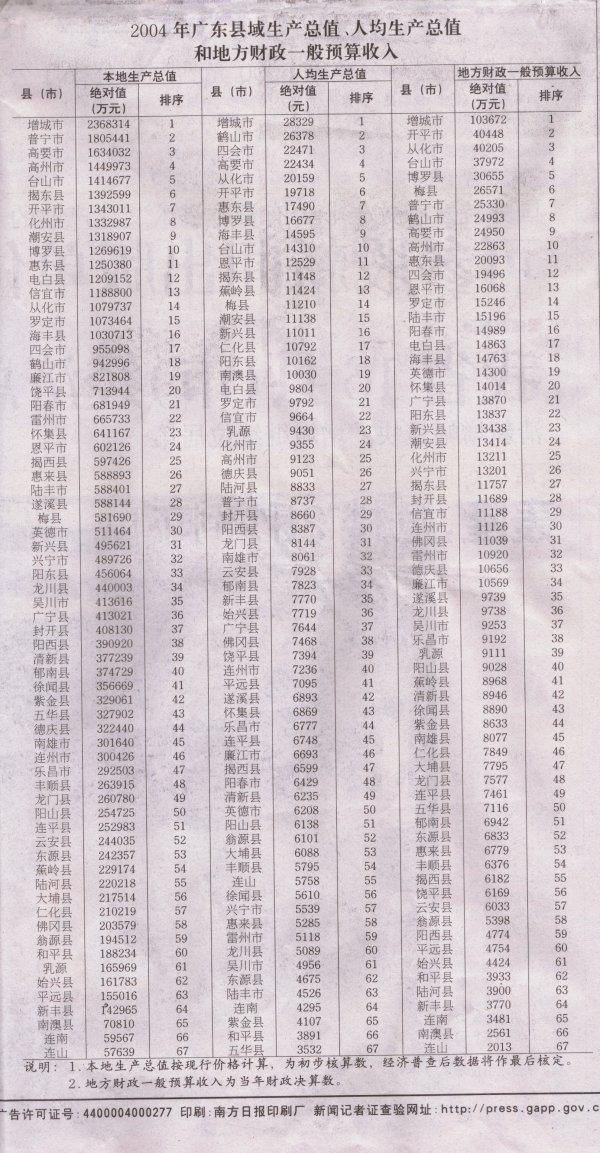 2004年广东县域生产总值、人均生产总值
和地方财政一般预算收入
县（市） 本地生产总值 县（市） 人均生产总值 县（市） 地方财政一般预算收入
绝对值（万元） 排序 绝对值（元） 排序 绝对值（万元） 排序
增城市 2368314 1 增城市 28329 1 增城市 103672 1
普宁市 1805441 2 鹤山市 26378 2 开平市 40448 2
高要市 1634032 3 四会市 22471 3 从化市 40205 3
高州市 1449973 4 高要市 22434 4 台山市 37972 4
台山市 1414677 5 从化市 20159 5 博罗县 30655 5
揭东县 1392599 6 开平市 19718 6 梅县 26571 6
开平市 1343011 7 惠东县 17490 7 普宁市 25330 7
化州市 1332987 8 博罗县 16677 8 鹤山市 24993 8
潮安县 1318907 9 海丰县 14595 9 高要市 24950 9
博罗县 1269619 10 台山市 14310 10 高州市 22863 10
惠东县 1250380 11 恩平市 12529 11 惠东县 20093 11
电白县 1209152 12 揭东县 11448 12 四会市 19496 12
信宜市 1188800 13 蕉岭县 11424 13 恩平市 16068 13
从化市 1079737 14 梅县 11210 14 罗定市 15246 14
罗定市 1073464 15 潮安县 11138 15 陆丰市 15196 15
海丰县 1030713 16 新兴县 11011 16 阳春市 14989 16
四会市 955098 17 仁化县 10792 17 电白县 14863 17
鹤山市 942996 18 阳东县 10162 18 海丰县 14763 18
廉江市 821808 19 南澳县 10030 19 英德市 14300 19
饶平县 713944 20 电白县 9804 20 怀集县 14014 20
阳春市 681949 21 罗定市 9792 21 广宁县 13870 21
雷州市 665733 22 信宜市 9664 22 阳东县 13837 22
怀集县 641167 23 乳源 9430 23 新兴县 13438 23
恩平市 602126 24 化州市 9355 24 潮安县 13414 24
揭西县 597426 25 高州市 9123 25 化州市 13211 25
惠来县 588893 26 德庆县 9051 26 兴宁市 13201 26
陆丰市 588401 27 陆河县 8833 27 揭东县 11757 27
遂溪县 588144 28 普宁市 8737 28 封开县 11689 28
梅县 581690 29 封开县 8660 29 信宜市 11188 29
英德市 511464 30 阳西县 8387 30 连州市 11126 30
新兴县 495621 31 龙门县 8144 31 佛冈县 11039 31
兴宁市 489726 32 南雄市 8061 32 雷州市 10920 32
阳东县 456064 33 云安县 7928 33 德庆县 10656 33
龙川县 440003 34 郁南县 7823 34 廉江市 10569 34
吴川市 413616 35 新丰县 7770 35 遂溪县 9739 35
广宁县 413021 36 始兴县 7719 36 龙川县 9738 36
封开县 408130 37 广宁县 7644 37 吴川市 9253 37
阳西县 390920 38 佛冈县 7468 38 乐昌市 9192 38
清新县 377239 39 饶平县 7394 39 乳源 9111 39
郁南县 374729 40 连州市 7236 40 阳山县 9028 40
徐闻县 356669 41 平远县 7095 41 蕉岭县 8968 41
紫金县 329061 42 遂溪县 6893 42 清新县 8946 42
五华县 327902 43 怀集县 6869 43 徐闻县 8890 43
德庆县 322440 44 乐昌市 6777 44 紫金县 8633 44
南雄市 301640 45 连平县 6748 45 南雄市 8077 45
连州市 300426 46 廉江市 6693 46 仁化县 7849 46
乐昌市 292503 47 揭西县 6599 47 大埔县 7795 47
丰顺县 263915 48 阳春市 6429 48 龙门县 7577 48
龙门县 260780 49 清新县 6235 49 连平县 7461 49
阳山县 254725 50 英德市 6208 50 五华县 7116 50
连平县 252983 51 阳山县 6138 51 郁南县 6942 51
云安县 244035 52 翁源县 6101 52 东源县 6833 52
东源县 242357 53 大埔县 6088 53 惠来县 6779 53
蕉岭县 229174 54 丰顺县 5795 54 丰顺县 6376 54
陆河县 220218 55 连山 5758 55 揭西县 6182 55
大埔县 217514 56 徐闻县 5610 56 饶平县 6169 56
仁化县 210219 57 兴宁市 5539 57 云安县 6033 57
佛冈县 203579 58 惠来县 5285 58 翁源县 5398 58
翁源县 194512 59 雷州市 5118 59 阳西县 4774 59
和平县 188234 60 龙川县 5089 60 平远县 4754 60
乳源 165969 61 吴川市 4956 61 始兴县 4424 61
始兴县 161783 62 东源县 4675 62 和平县 3933 62
平远县 155016 63 陆丰市 4526 63 陆河县 3900 63
新丰县 142965 64 连南 4295 64 新丰县 3770 64
南澳县 70810 65 紫金县 4107 65 连南 3481 65
连南 59567 66 和平县 3891 66 南澳县 2561 66
连山 57639 67 五华县 3532 67 连山 2013 67
说明：1.本地生产总值按现行价格计算，为初步核算数，经济普查后数据将作最后核定。
2.地方财政一般预算收入为当年财政决算数。
广告许可证号：4400004000277 印刷：南方日报印刷厂 新闻记者证查验网址：http://press.gapp.gov.c